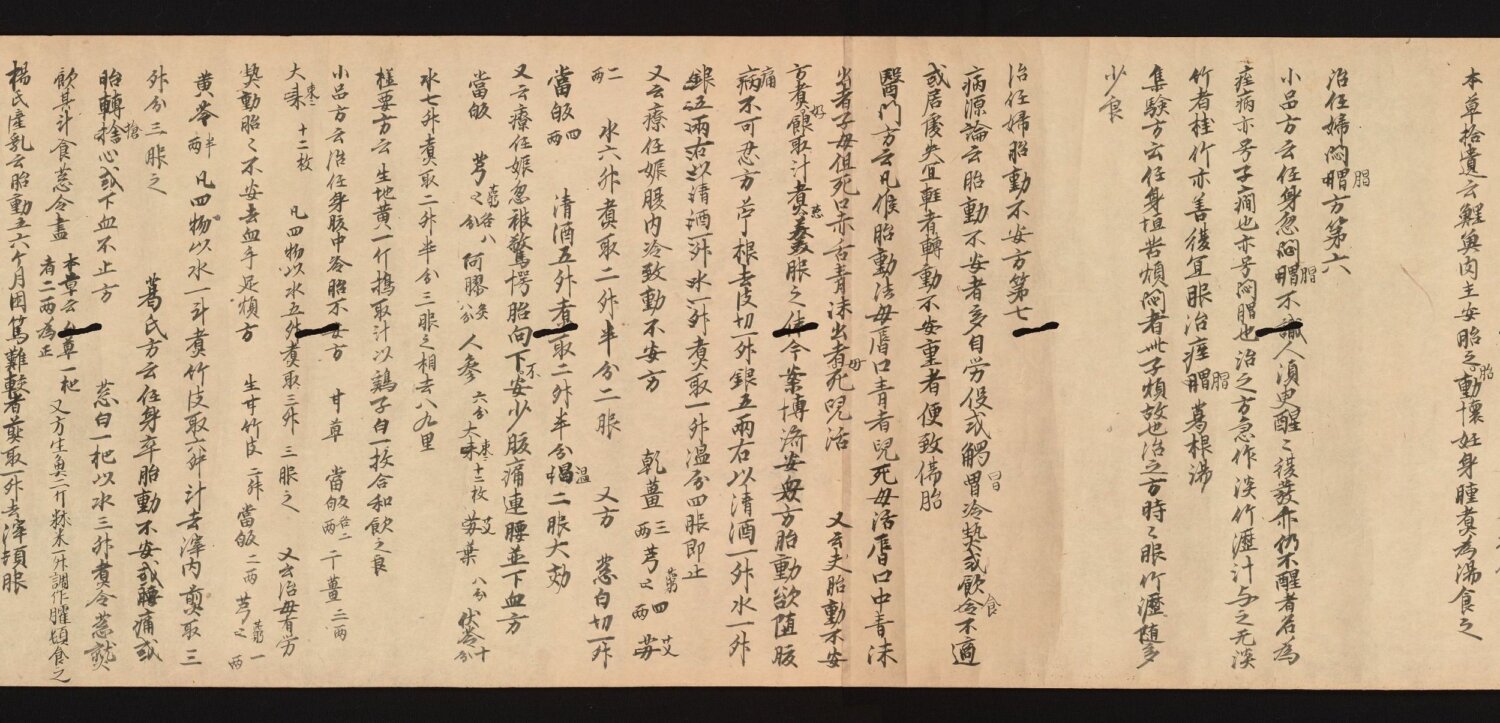 本草拾遺云鯉魚肉主安胎之胎動懷妊身腫煮為湯食之
治任婦悶冒方第六
小品方云任身忽悶冒不識人湏臾醒〻後發亦仍不醒者名為
痙病亦号子癇也亦号悶冒也治之方急作淡竹瀝汁与之无淡
竹者桂竹亦善後冝服治痙冒葛根湯
集驗方云任身恒苦煩悶者此子煩故也治之方時〻服竹瀝随多
少良
治任婦胎動不安方第七
病源論云胎動不安者多自勞役或觸冒冷熱或飲食不適
或居處失冝輕者轉動不安重者便致傷胎
醫門方云凡候胎動法母脣口青者兒死母活脣口中青沫
出者子母俱死口赤舌青沫出者母死兒活 又云夫胎動不安
方煮好銀取汁煮葱羹服之佳今案博濟安衆方胎動欲随腹
痛病不可忍方苧根去皮切一升銀五兩右以清酒一升水一升
銀五兩右以清酒一升水一升煮取一升温分四服即止
又云療任娠腹内冷致動不安方 乾薑三兩 芎〻四兩 艾
二兩 水六升煮取二升半分二服 又方 葱白切一升
當皈四兩 清酒五升煮取二升半分温二服大効
又云療任娠忽被驚愕胎向下不安少腹痛連腰並下血方
當皈 芎〻各八分 阿膠八分炙 人參六分 大棗十二枚 艾葉八分 伏苓十分
水七升煮取二升半分三服之相去八九里
極要方云生地黄一斤搗取汁以鷄子白一投合和飲之良
小品方云治任身腹中冷胎不安方 甘草 當皈各二兩 干薑三兩
大棗十二枚 凡四物以水五升煮取三升三服之 又云治母有勞
熱動胎〻不安去血手足煩方 生甘竹皮二升 當皈二兩 芎〻一兩
黄芩半兩 凡四物以水一斗煮竹皮取六升汁去滓内煎取三
升分三服之 葛氏方云任身卒胎動不安或腰痛或
胎轉搶心或下血不止方 葱白一把以水三升煮令葱熟
飲其汁食葱令盡 本草云 又方生魚二斤秫米一升調作臛頓食之
楊氏産乳云胎動五六ケ月困篤難較者煎取一升去滓頓服